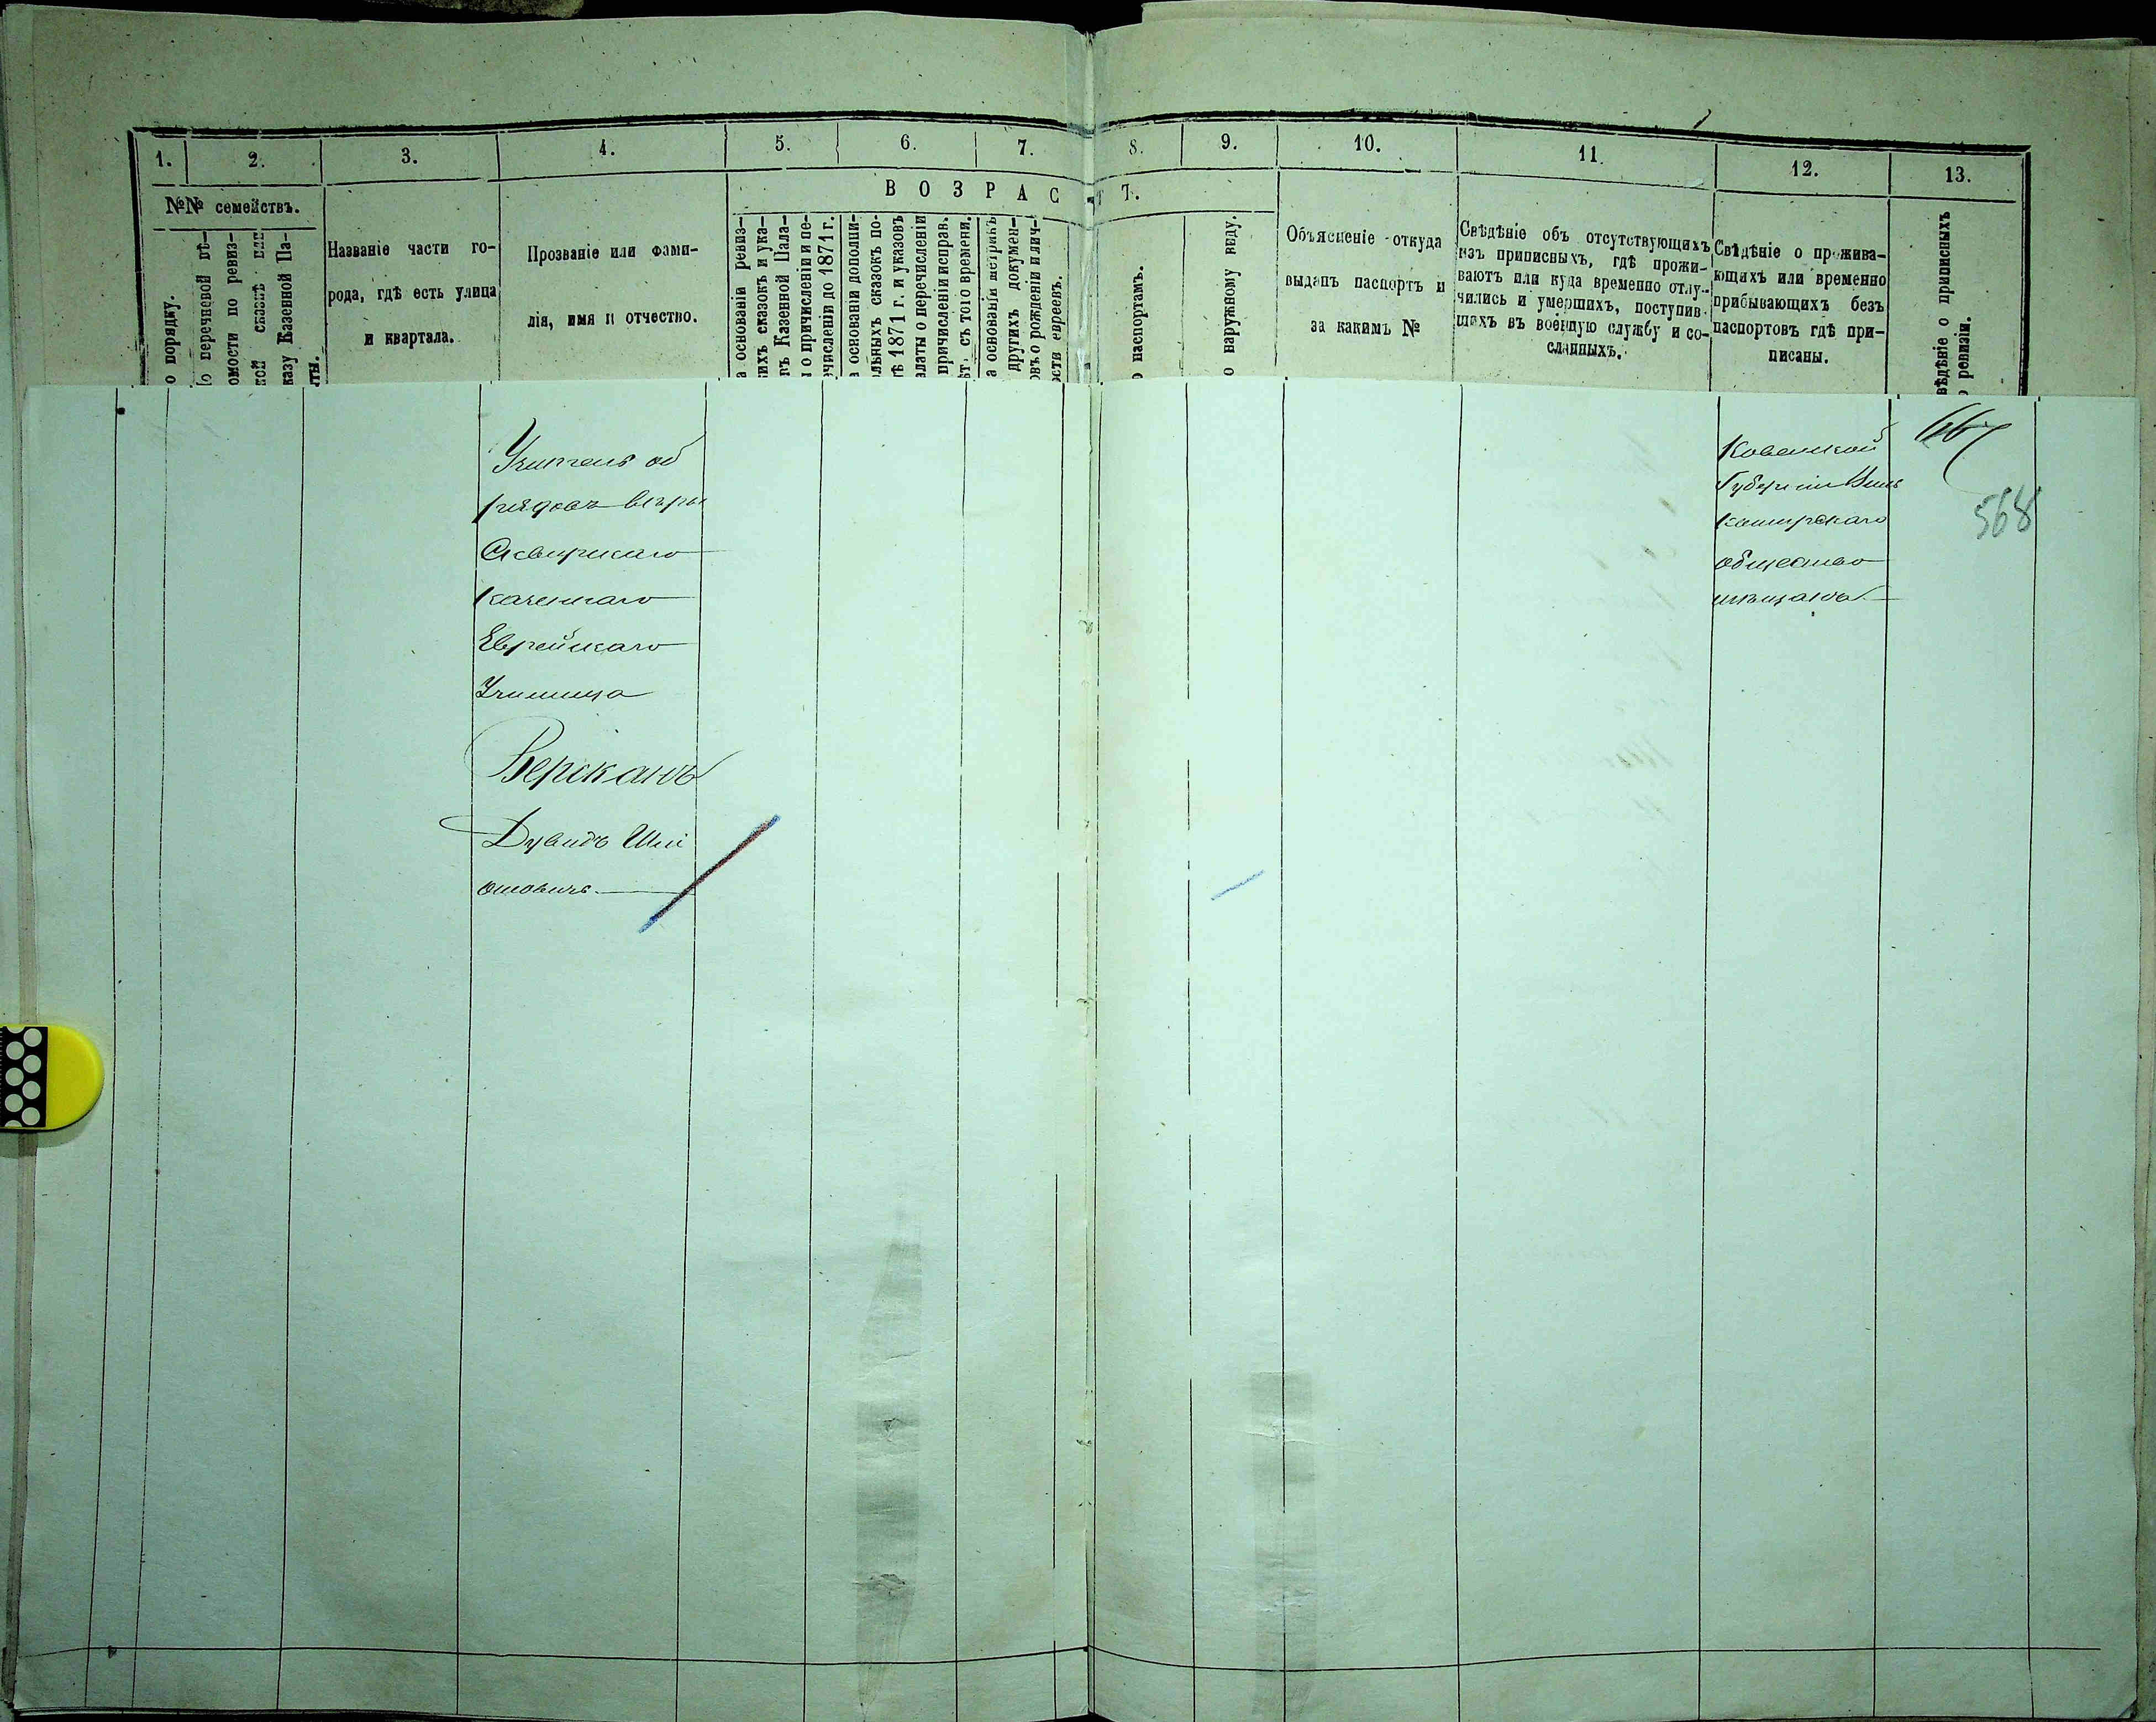 1. 2. 3. 4. 5. 6. 7. 8. 9. 10. 11. 12. 13.
ВОЗРАСТ
№№ семействъ.
о порядку.
о перечневой вѣ-
омости по ревиз-
казу Казенной Па-
Названіе части го-
рода, гдѣ есть улица
и квартала.
Прозваніе или фами-
лія, имя и отчество.
а основаніи ревиз-
ихъ сказокъ и ука-
въ Казенной Пала-
о причисленіи и пе-
ечисленіи до 1871 г.
а основаніи дополни-
льныхъ сказокъ по-
ѣ 1871 г. и указовъ
алаты о перечисленіи
причисленіи исправ.
ѣт. съ того времени.
а основаніи метрикъ
другихъ докумен-
овъ о рожденіи и лич-
ости евреевъ.
о паспортамъ.
о наружному виду.
Объясненіе откуда
выданъ паспортъ и
за какимъ №
Свѣдѣніе объ отсутствующихъ
изъ приписныхъ, гдѣ прожи-
ваютъ или куда временно отлу-
чились и умершихъ, поступив-
шихъ въ военную службу и со-
сланныхъ.
Свѣдѣніе о прожива-
ющихъ или временно
прибывающихъ безъ
паспортовъ гдѣ при-
писаны.
вѣдѣніе о приписныхъ
ревизіи.
Учитель об
рядовъ вѣры
Сквирскаго
казеннаго
Еврейскаго
Училища
Берсканъ
Дувидъ
Ковенской
Губерніи Виль
комирскаго
общества
мѣщанъ
568